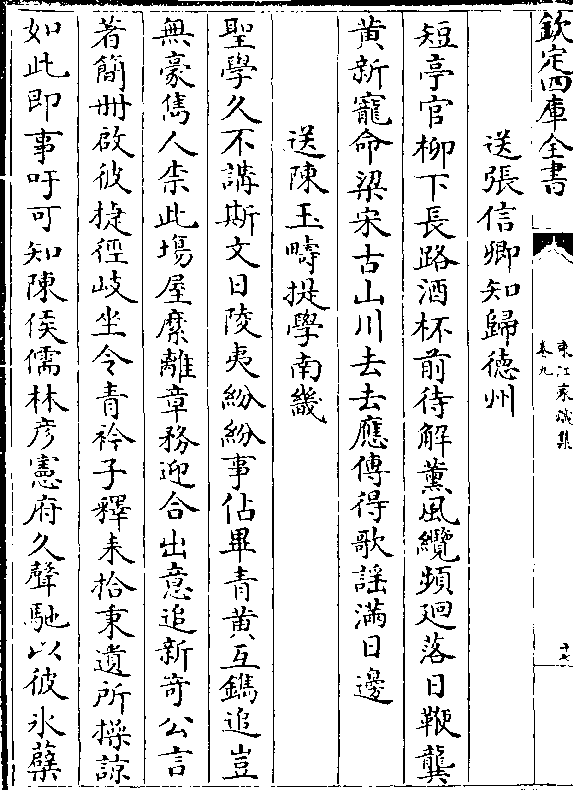 欽定四庫全書
東江家藏集
卷九
十七
送張信卿知歸德州
短亭官柳下長路酒杯前待解薰風纜頻廻落日鞭龔
黄新寵命梁宋古山川去去應傳得歌謡滿日邊
送陳玉疇提學南畿
聖學久不講斯文日陵夷紛紛事佔畢青黄互鐫追豈
無豪雋人柰此塲屋縻離章務迎合出意追新竒公言
著簡冊啟彼捷徑岐坐令青衿子釋耒拾秉遺所操諒
如此即事吁可知陳侯儒林彦憲府久聲馳以彼氷蘖